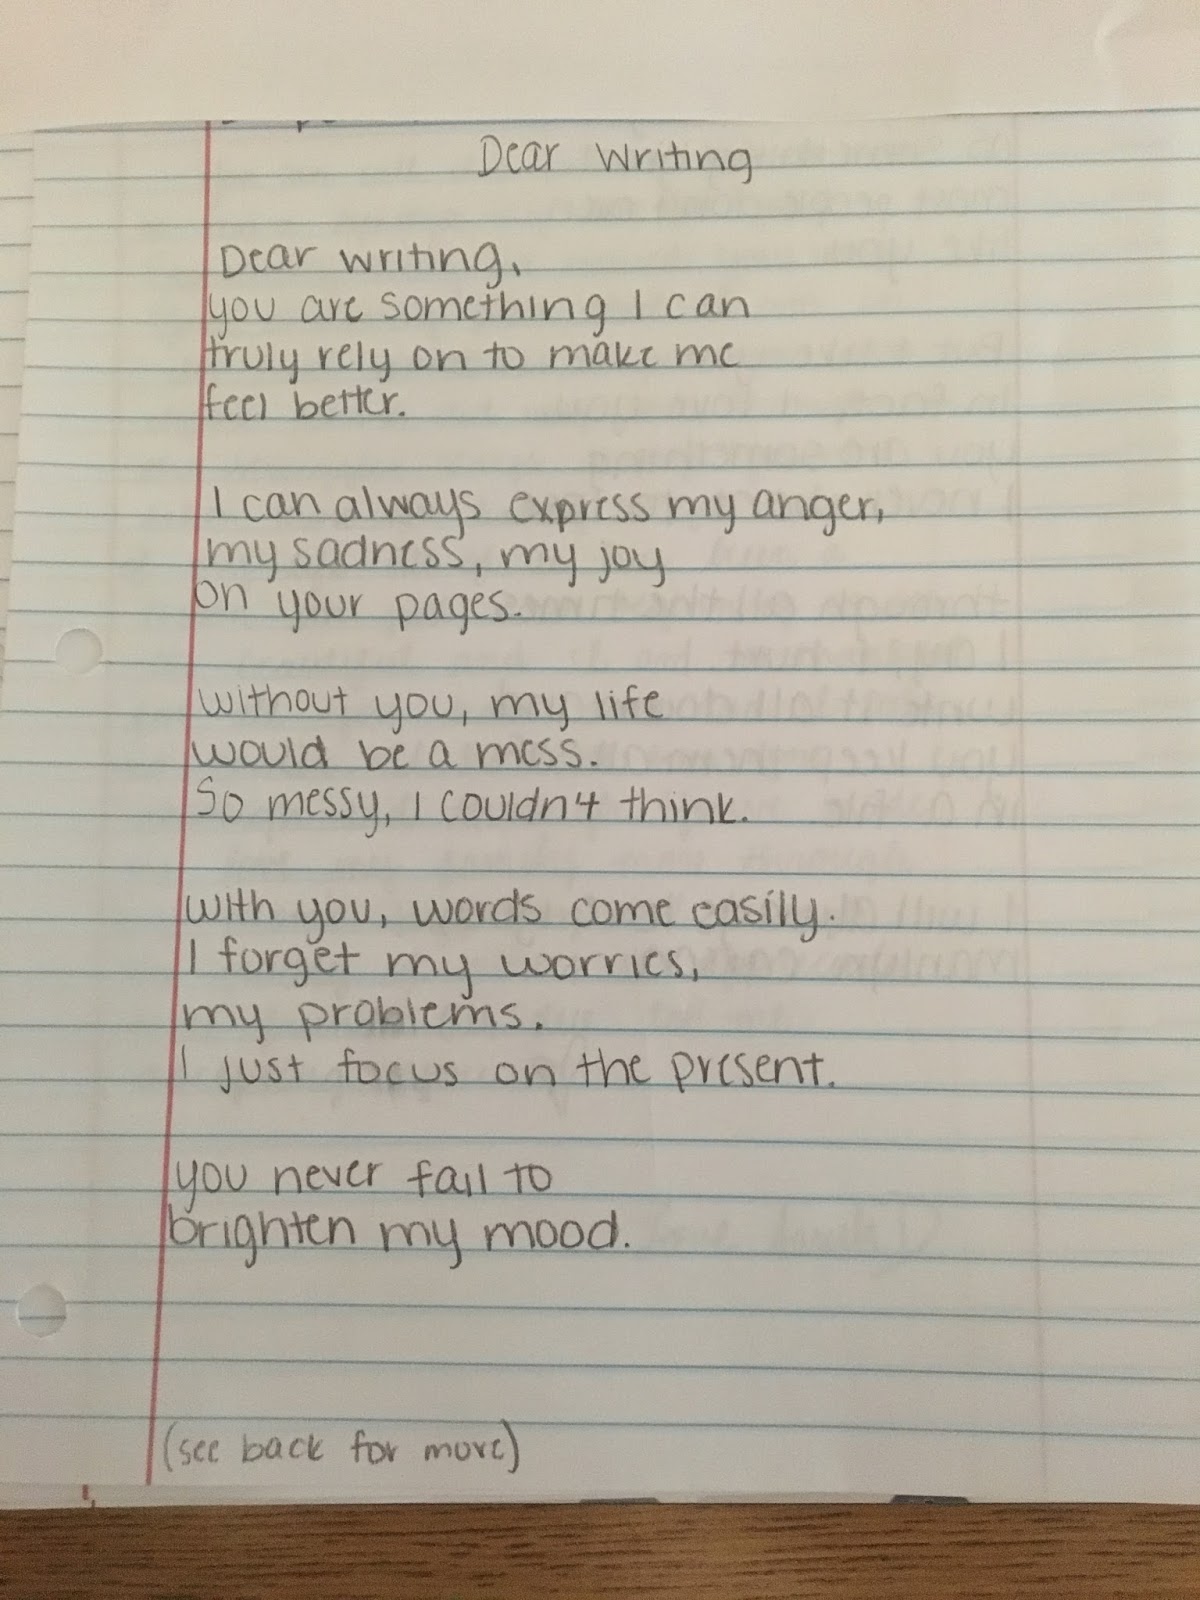 Dear Writing
Dear writing,
you are something I can
truly rely on to make me
feel better.
I can always express my anger,
my sadness, my joy
on your pages.
without you, my life
would be a mess.
So messy, I couldn't think.
with you, words come easily.
I forget my worries,
my problems.
I just focus on the present.
you never fail to
brighten my mood.
(see back for more)